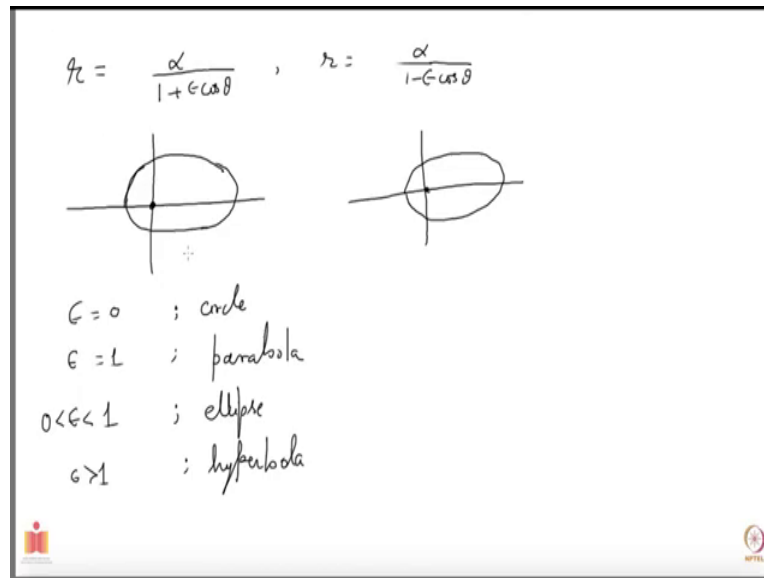 r = α / (1 + ϵ cos θ) , r = α / (1 - ϵ cos θ)
ϵ = 0 ; circle
ϵ = 1 ; parabola
0 < ϵ < 1 ; ellipse
ϵ > 1 ; hyperbola
NPTEL